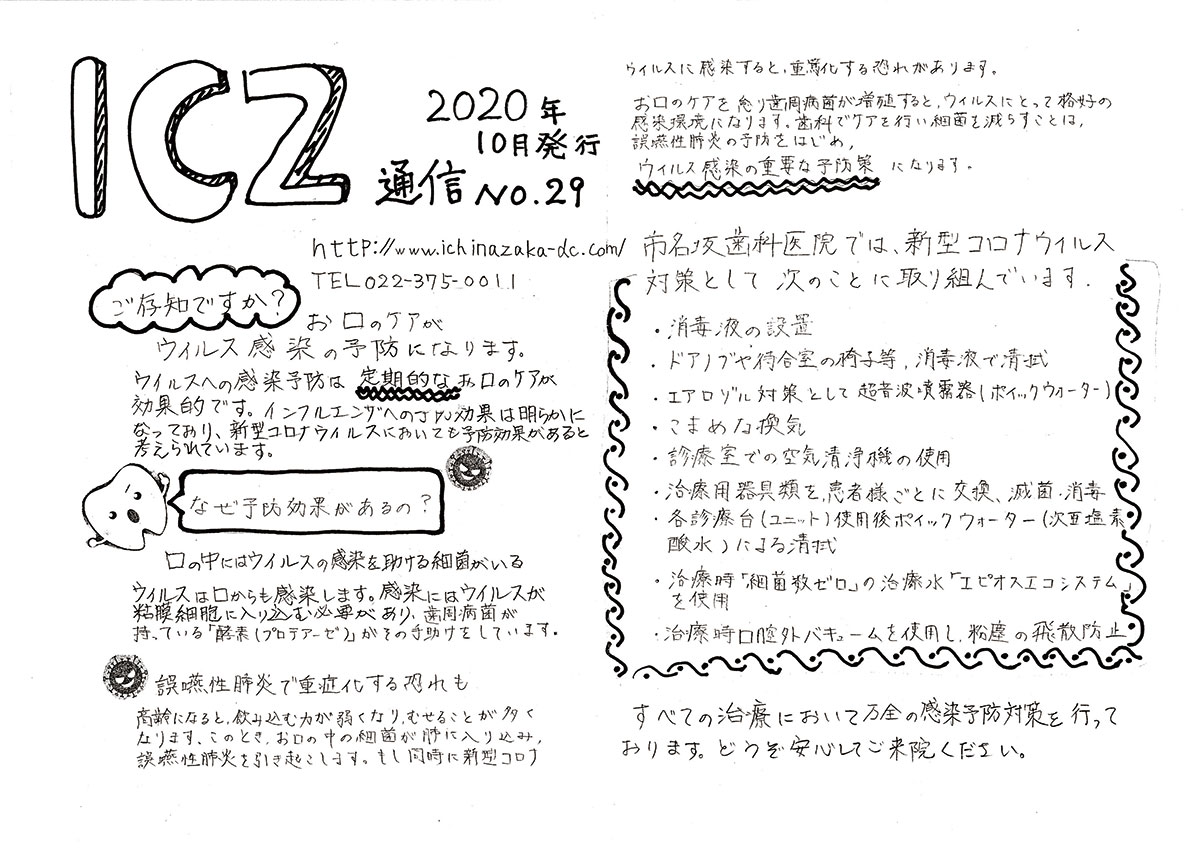 ICZ
2020年
10月発行
通信 No.29
http://www.ichinazaka-dc.com/
TEL022-375-0011
ご存知ですか?
お口のケアが
ウイルス感染の予防になります。
ウイルスへの感染予防は 定期的な お口のケアが
効果的です。インフルエンザへの予防効果は明らかに
なっており、新型コロナウイルスにおいても予防効果があると
考えられています。
なぜ予防効果があるの?
口の中にはウイルスの感染を助ける細菌がいる
ウイルスは口からも感染します。感染にはウイルスが
粘膜細胞に入り込む必要があり、歯周病菌が
持っている「酵素(プロテアーゼ)」がその手助けをしています。
誤嚥性肺炎で重症化する恐れも
高齢になると、飲み込む力が弱くなり、むせることが多く
なります。このとき、お口の中の細菌が肺に入り込み、
誤嚥性肺炎を引き起こします。もし同時に新型コロナ
ウイルスに感染すると、重篤化する恐れがあります。
お口のケアを怠り歯周病菌が増殖すると、ウイルスにとって格好の
感染環境になります。歯科でケアを行い細菌を減らすことは、
誤嚥性肺炎の予防をはじめ、
ウイルス感染の重要な予防策 になります。
市名坂歯科医院では、新型コロナウイルス
対策として 次のことに取り組んでいます.
・消毒液の設置
・ドアノブや待合室の椅子等,消毒液で清拭
・エアロゾル対策として超音波噴霧器(ポイックウォーター)
・こまめな換気
・診療室での空気清浄機の使用
・治療用器具類を,患者様ごとに交換、滅菌・消毒
・各診療台(ユニット)使用後ポイックウォーター(次亜塩素
酸水)による清拭
・治療時「細菌数ゼロ」の治療水「エピオスエコシステム」
を使用
・治療時口腔外バキュームを使用し,粉塵の飛散防止
すべての治療において万全の感染予防対策を行って
おります。どうぞ安心してご来院ください。